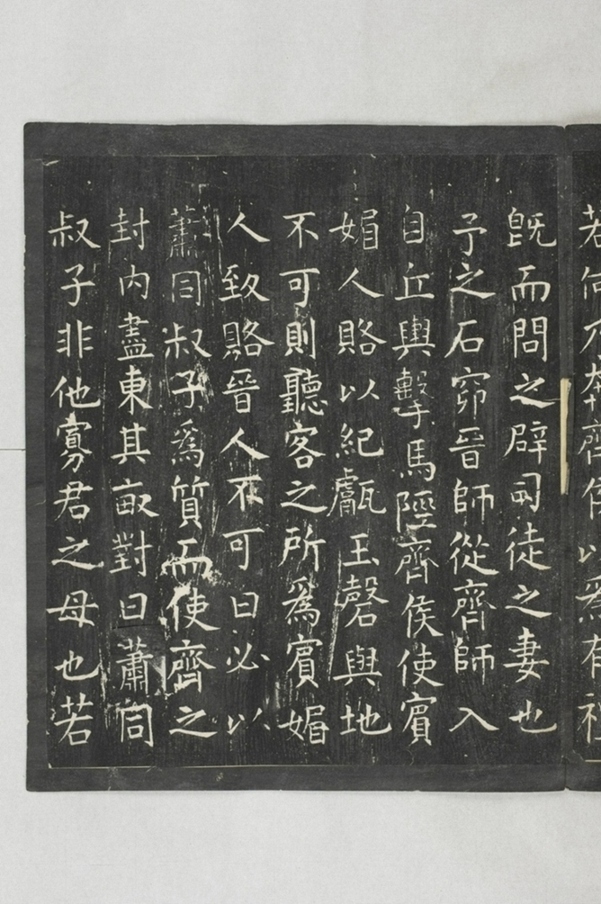 若何乃奔齊侯以爲有
既而問之辟司徒之妻也
予之石窌晉師從齊師入
自丘輿擊馬陘齊侯使賓
媚人賂以紀甗玉磬與地
不可則聽客之所爲賓媚
人致賂晉人不可曰必以
蕭同叔子爲質而使齊之
封内盡東其畝對曰蕭同
叔子非他寡君之母也若